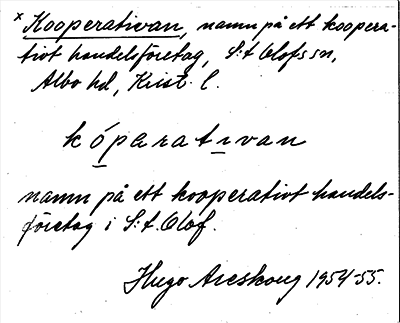 x Kooperativan, namn på ett koopera-
tivt handelsföretag, S:t Olofs sn,
Albo hd, Krist. l.
kóparatıvan
namn på ett kooperativt handels-
företag i S:t. Olof.
Hugo Areskoug 1954-55.